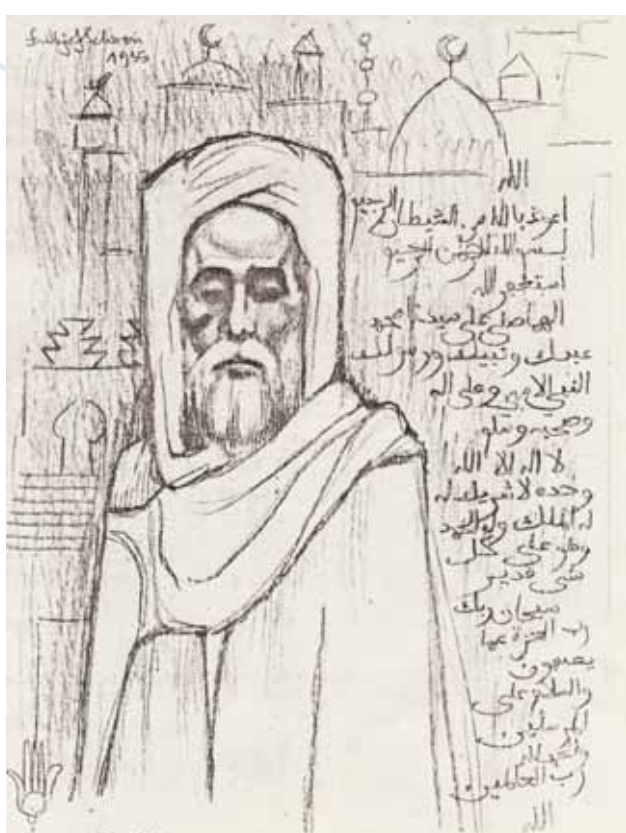 1935
الله
اعوذ بالله من الشيطان الرجيم
بسم الله الرحمن الرحيم
استغفر الله
اللهم صلي على سيدنا محمد
عبدك ونبيك ورسولك
النبي الامي وعلى اله
وصحبه وسلم
لا اله الا الله
وحده لا شريك له
له الملك وله الحمد
وهو على كل
شي قدير
سبحان ربك
رب العزة عما
يصفون
والسلام على
المرسلين
والحمد لله
رب العالمين
الله